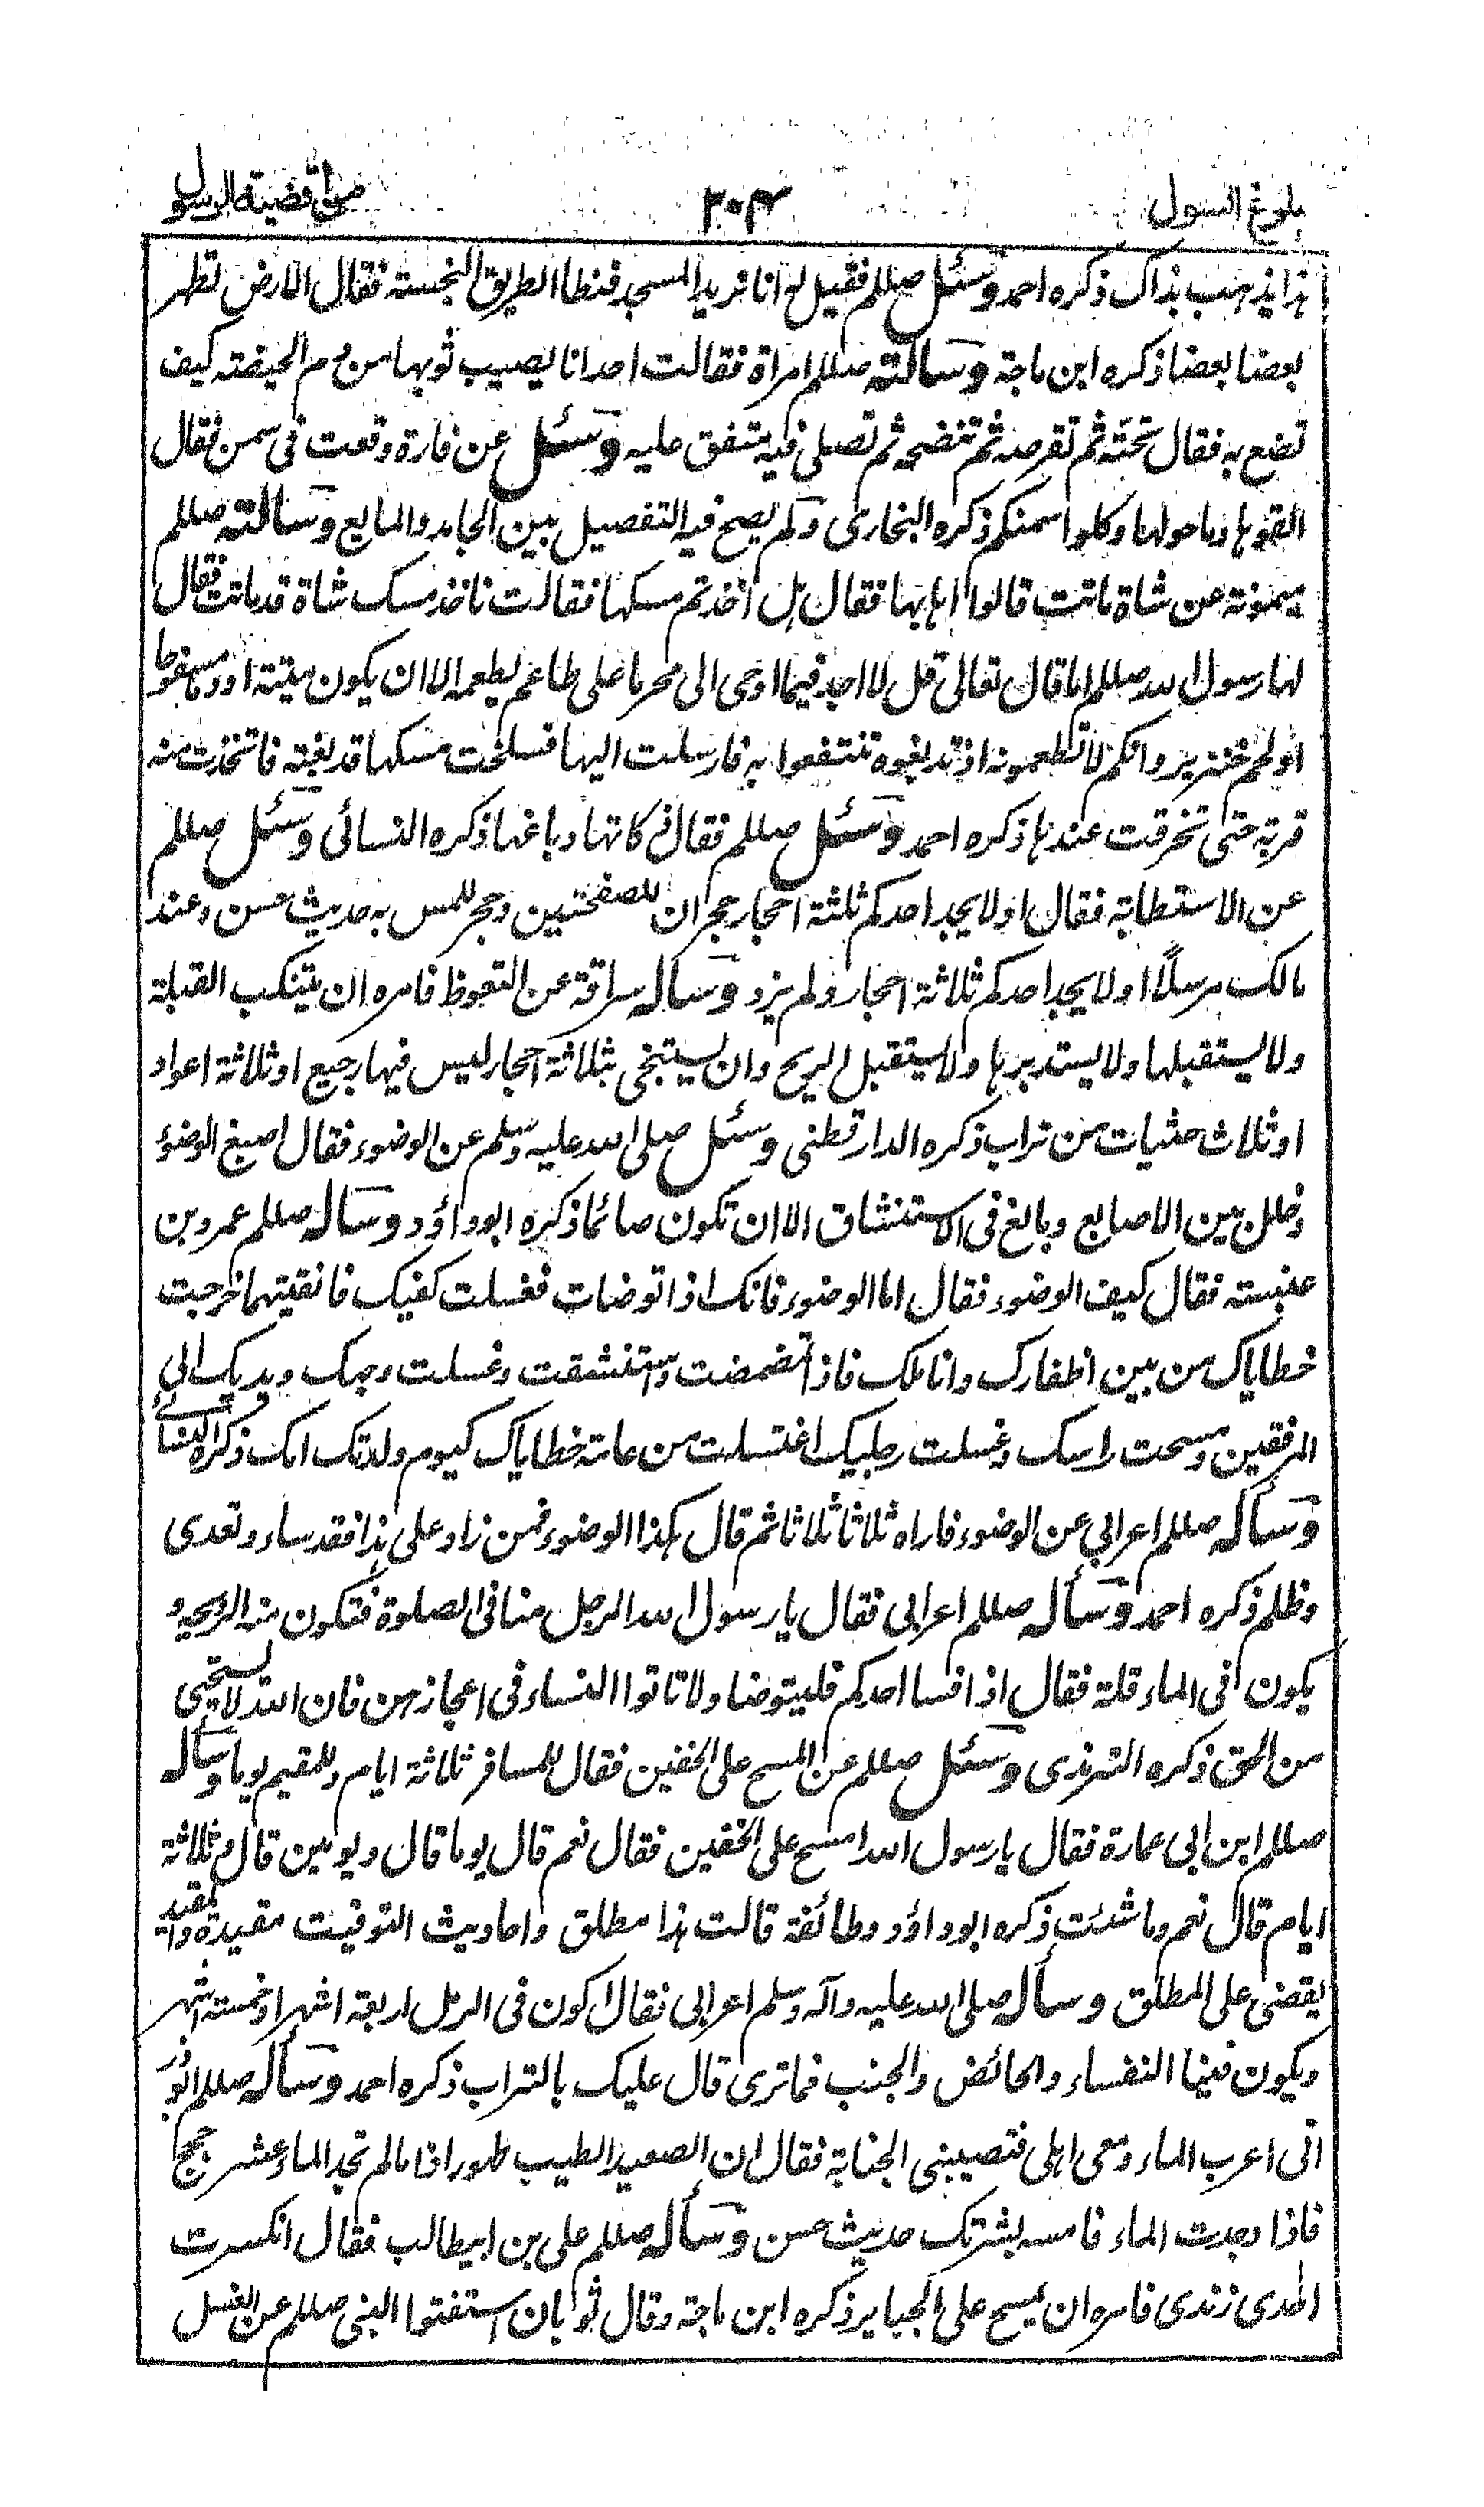 بلوغ السول
٣٠٤
من اقضية الرسول
هذا يذهب بذاك ذكره احمد وسئل صللم فقيل له انا نريد المسجد فنطأ الطريق النجسة فقال الارض تطهر
بعضا بعضا ذكره ابن ماجة وسألته صللم امراة فقالت احدانا يصيب ثوبها من دم الحيضة كيف
تضع به فقال تحته ثم تقرصه ثم تنضحه ثم تصلى فيه متفق عليه وسئل عن فارة وقعت فى سمن فقال
القوها وما حولها وكلوا سمنكم ذكره البخارى ولم يصح فيه التفصيل بين الجامد والمايع وسألته صللم
ميمونة عن شاة ماتت قالوا اهابها فقال هل اخذتم مسكها فقالت ناخذ مسك شاة قد ماتت فقال
لها رسول الله صللم اما قال تعالى قل لا اجد فيما اوحى الى محرما على طاعم يطعمه الا ان يكون ميتة او دما مسفوحا
او لحم خنزير وانكم لا تطعمونه ان تدبغوه تنتفعوا به فارسلت اليها فسلخت مسكها فدبغته فاتخذت منه
قربة حتى تخرقت عندها ذكره احمد وسئل صللم فقال ذكاتها دباغها ذكره النسائى وسئل صللم
عن الاستطابة فقال اولا يجد احدكم ثلثة احجار حجران للصفحتين وحجر للمس به حديث حسن وعند
مالك مرسلًا اولا يجد احدكم ثلاثة احجار ولم يزد وساله سراقة عن التغوظ فامره ان يتنكب القبلة
ولا يستقبلها ولا يستدبرها ولا يستقبل الريح وان يستنجى بثلاثة احجار ليس فيها رجيع او ثلاثة اعواد
او ثلاث حثيات من تراب ذكره الدارقطنى وسئل صلى الله عليه وسلم عن الوضوء فقال اصبغ الوضوء
وخلل بين الاصابع وبالغ فى الاستنشاق الا ان تكون صائما ذكره ابوداؤد وسأله صللم عمرو بن
عنبسة فقال كيف الوضوء فقال اما الوضوء فانك اذا توضات فغسلت كفيك فانقيتهما خرجت
خطاياك من بين اظفارك واناملك فاذا تمضمضت واستنشقت وغسلت وجهك ويديك الى
المرفقين ومسحت راسك وغسلت رجليك اغتسلت من عامة خطاياك كيوم ولدتك امك ذكره النسائى
وسأله صللم اعرابى عن الوضوء فاراه ثلاثا ثلاثا ثم قال هكذا الوضوء فمن زاد على هذا فقد ساء وتعدى
وظلم ذكره احمد وسأله صللم اعرابى فقال يا رسول الله الرجل منا فى الصلوة فتكون منه الرويحة و
يكون فى الماء قلة فقال اذا فسا احدكم فليتوضا ولا تاتوا النساء فى اعجازهن فان الله لا يستحيى
من الحق ذكره الترمذى وسئل صللم عن المسح على الخفين فقال للمسافر ثلاثة ايام وللمقيم يوما وسأله
صللم ابن ابى عمارة فقال يا رسول الله امسح على الخفين فقال نعم قال يوما قال ويومين قال وثلاثة
ايام قال نعم وما شئت ذكره ابوداؤد وطائفة قالت هذا مطلق واحاديث التوقيت مقيدة والمقيد
يقضى على المطلق وسأله صلى الله عليه وآله وسلم اعرابى فقال اكون فى الرمل اربعة اشهر او خمسة اشهر
ويكون فينا النفساء والحائض والجنب فما ترى قال عليك بالتراب ذكره احمد وسأله صللم ابوذر
انى اعزب الماء ومعى اهلى فتصيبنى الجنابة فقال ان الصعيد الطيب طهورا فا مالم تجد الماء عشر حجج
فاذا وجدت الماء فامسه بشرتك حديث حسن وسأله صللم على بن ابيطالب فقال انكسرت
احدى زندى فامره ان يمسح على الجبايز ذكره ابن ماجة وقال ثوبان استفتوا النبى صللم عن الغسل